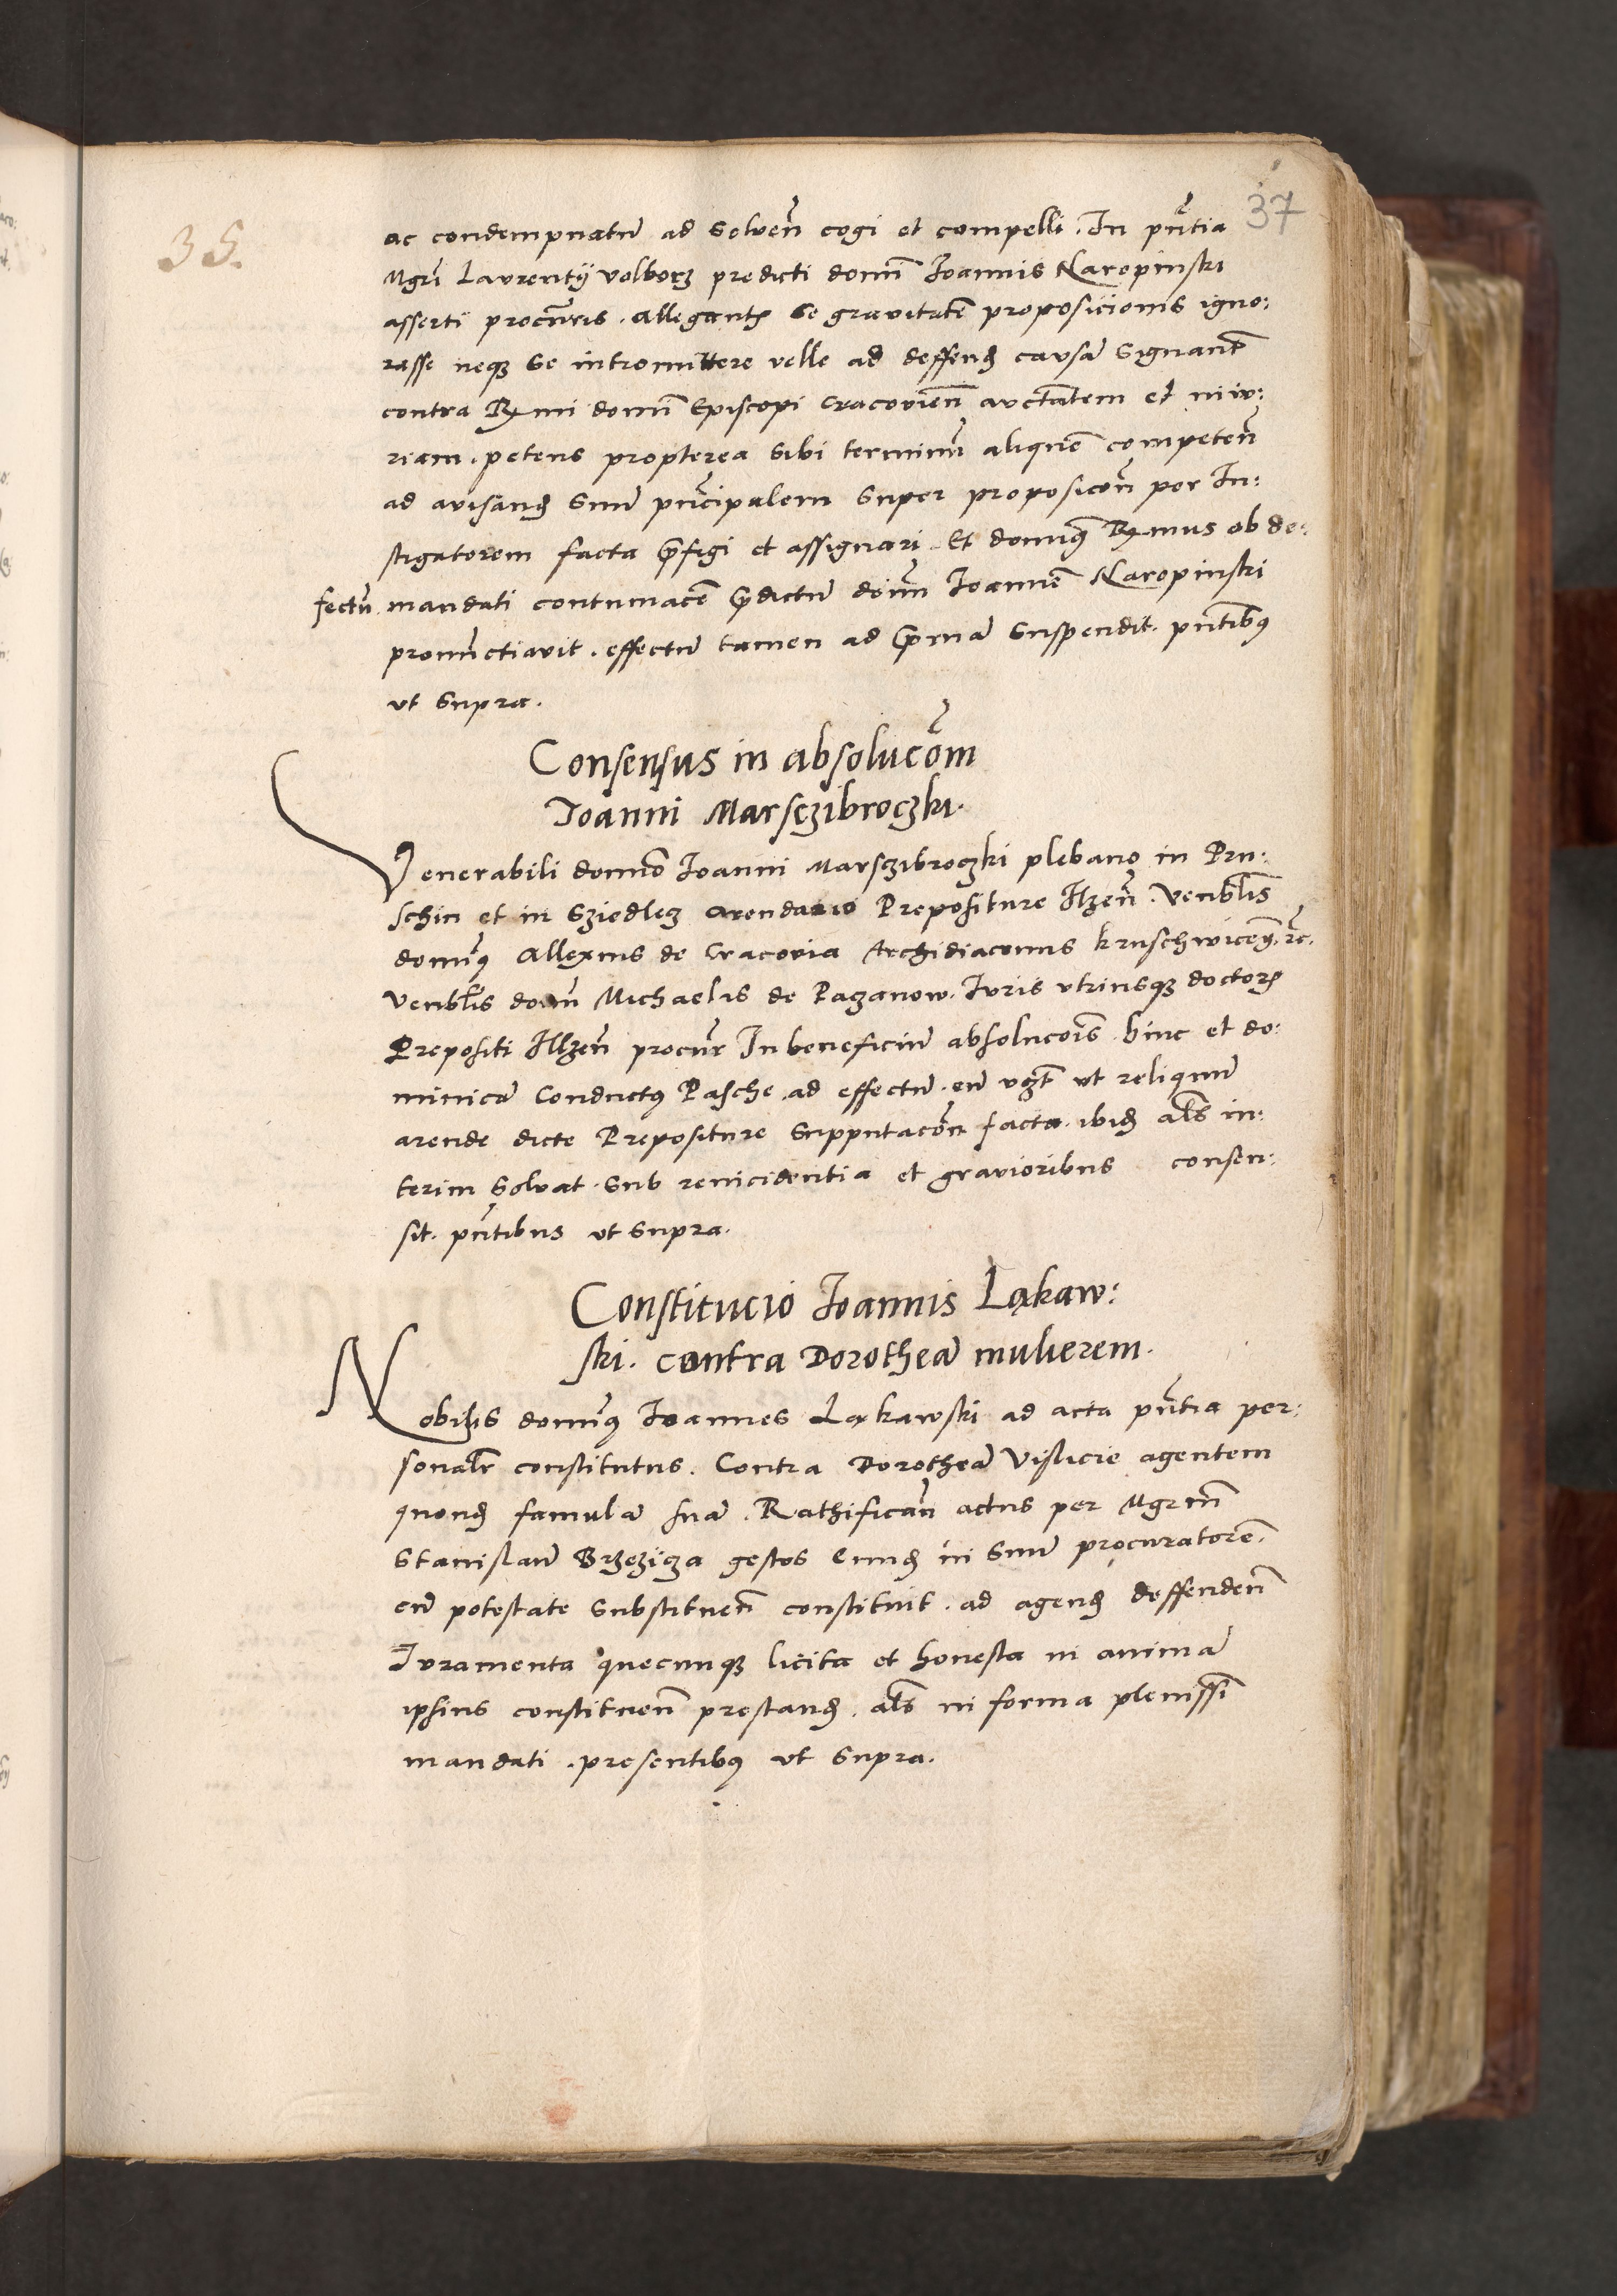 37
35.
ac condempnatū ad solven̄ cogi et compelli. In pn̄tia
Mgrī Laurentÿ Volborz predicti domī Joannis Naropinski
asserti procuris. Allegantꝭ se gravitatē proposicionis igno:
rasse neqꝫ se intromittere velle ad deffenꝺ causā signant̄
contra Rmi domī Episcopi Cracovien̄ auctatem et iniu:
riam. petens propterea sibi terminū aliquē competen̄
ad avisanꝺ suū pn̄cipalem super proposicōn̄ per In:
stigatorem facta p̄figi et assignari. Et dominꝰ Rmus ob de:
fectū mandati contumacē p̄dictū dom̄ Joannē Naropinski
pronūctiavit. effectū tamen ad p̄mā suspendit. pn̄tibꝰ
ut supra.
Consensus in absolucōm
Joanni Marsczibroczki.
Venerabili domō Joanni Marsczibroczki plebano in Pru:
schin et in Sziedlecz arendario Prepositure Ilzen̄. Venblīs
dominꝰ Allexius de Cracovia Archidiaconus Kruschwiceñ. rc.
Venblīs dom̄ Michaelis de Paczanow. Juris utriusqꝫ doctorꝭ
Prepositi Ilzen̄ procur̄ In beneficiū absolucōīs. hinc et do:
minicā Conductꝰ Pasche. ad effectū. cū vꝫt ut reliquū
arende dicte Prepositure supputacōn̄ facta. ibiꝺ als̄ in:
terim solvat. sub reincidentia et gravioribus consen:
sit. pn̄tibus ut supra.
Constitucio Joannis Ląkaw:
ski. contra Dorotheā mulierem.
Nobilis dominꝰ Joannes Ląkawski ad acta pn̄tia per:
sonalr̄ constitutus. Contra Dorotheā Vislicie agentem
quonꝺ famulā suā. Rathifican̄ actus per Mgrm̄
Stanislaū Brzezicza gestos Eunꝺ in suū procuratorē.
cū potestate substituen̄ constituit. ad agenꝺ deffenden̄
Juramenta quecunqꝫ licita et honesta in animā
ipsius constituen̄ prestanꝺ. als̄ in forma plenissī
mandati. presentibꝰ ut supra.